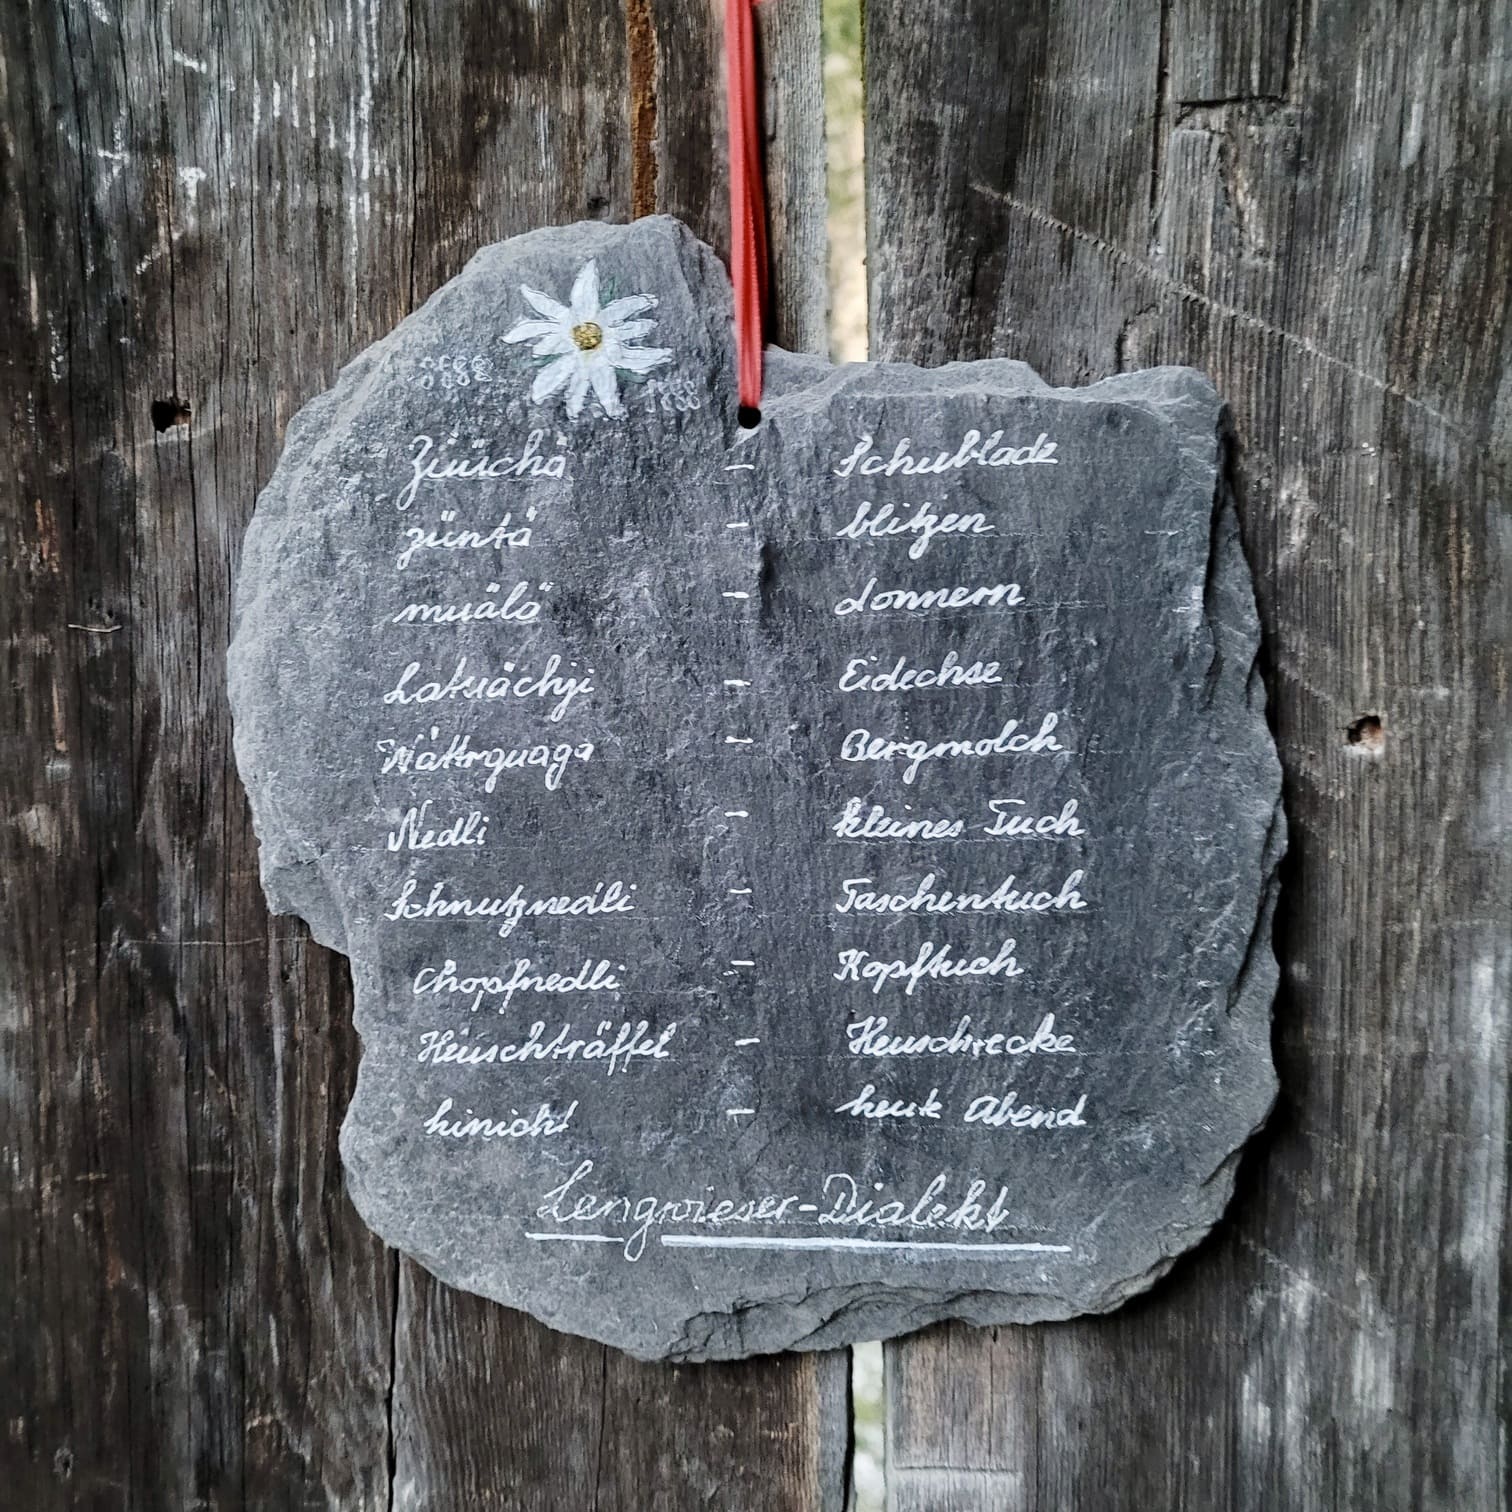 Ziüchä - Schublade
züntä - blitzen
muälä - donnern
Latuächji - Eidechse
Wättrguaga - Bergmolch
Nedli - kleines Tuch
Schnutznedli - Taschentuch
Chopfnedli - Kopftuch
Heuschträffel - Heuschrecke
hinicht - heute Abend
Lengwieser-Dialekt